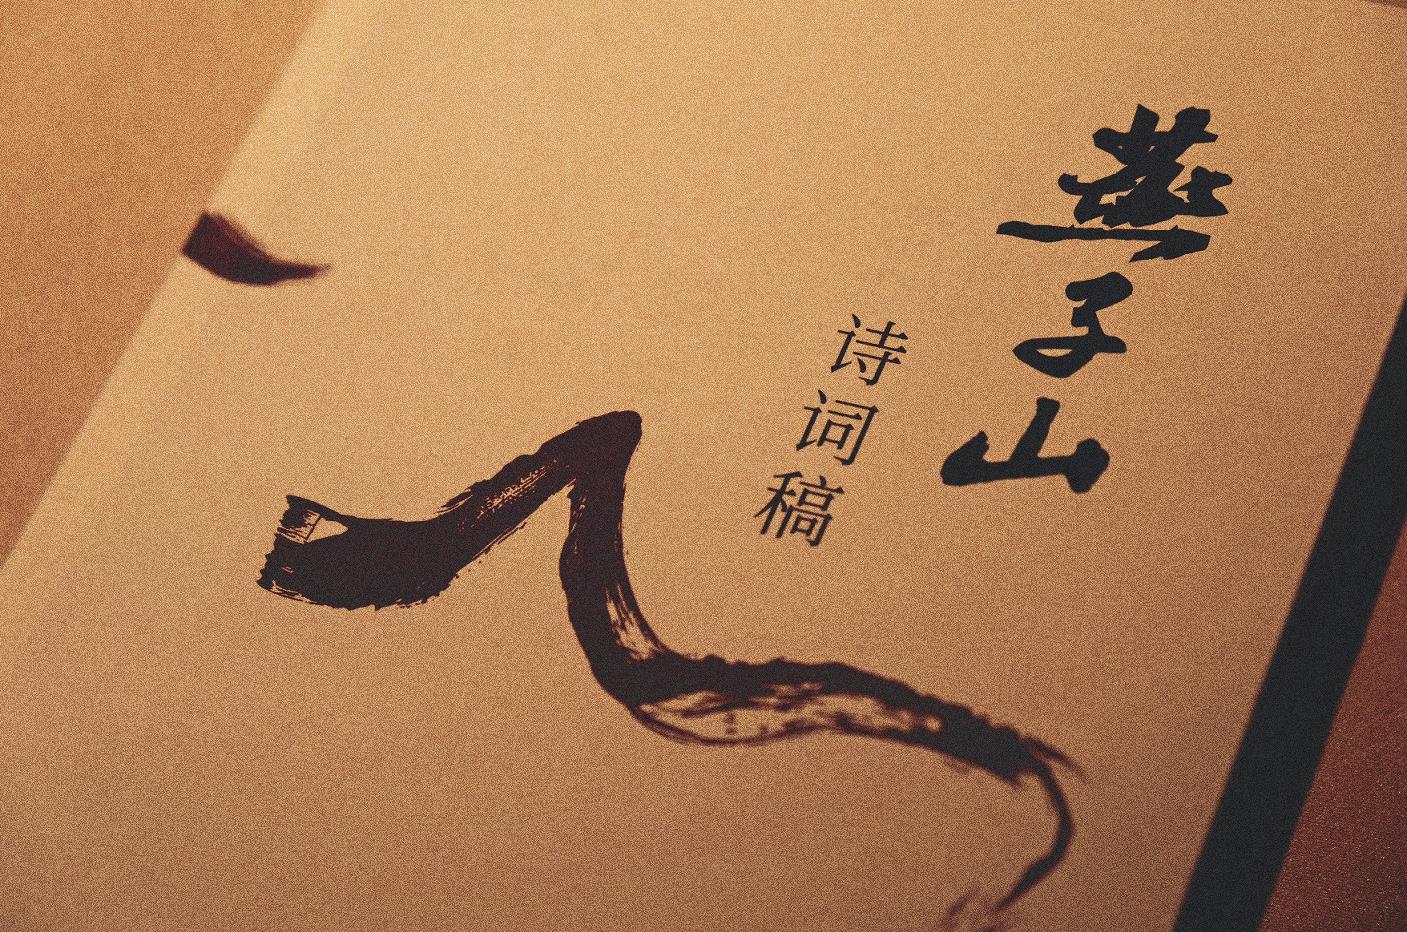 燕子山
诗词稿